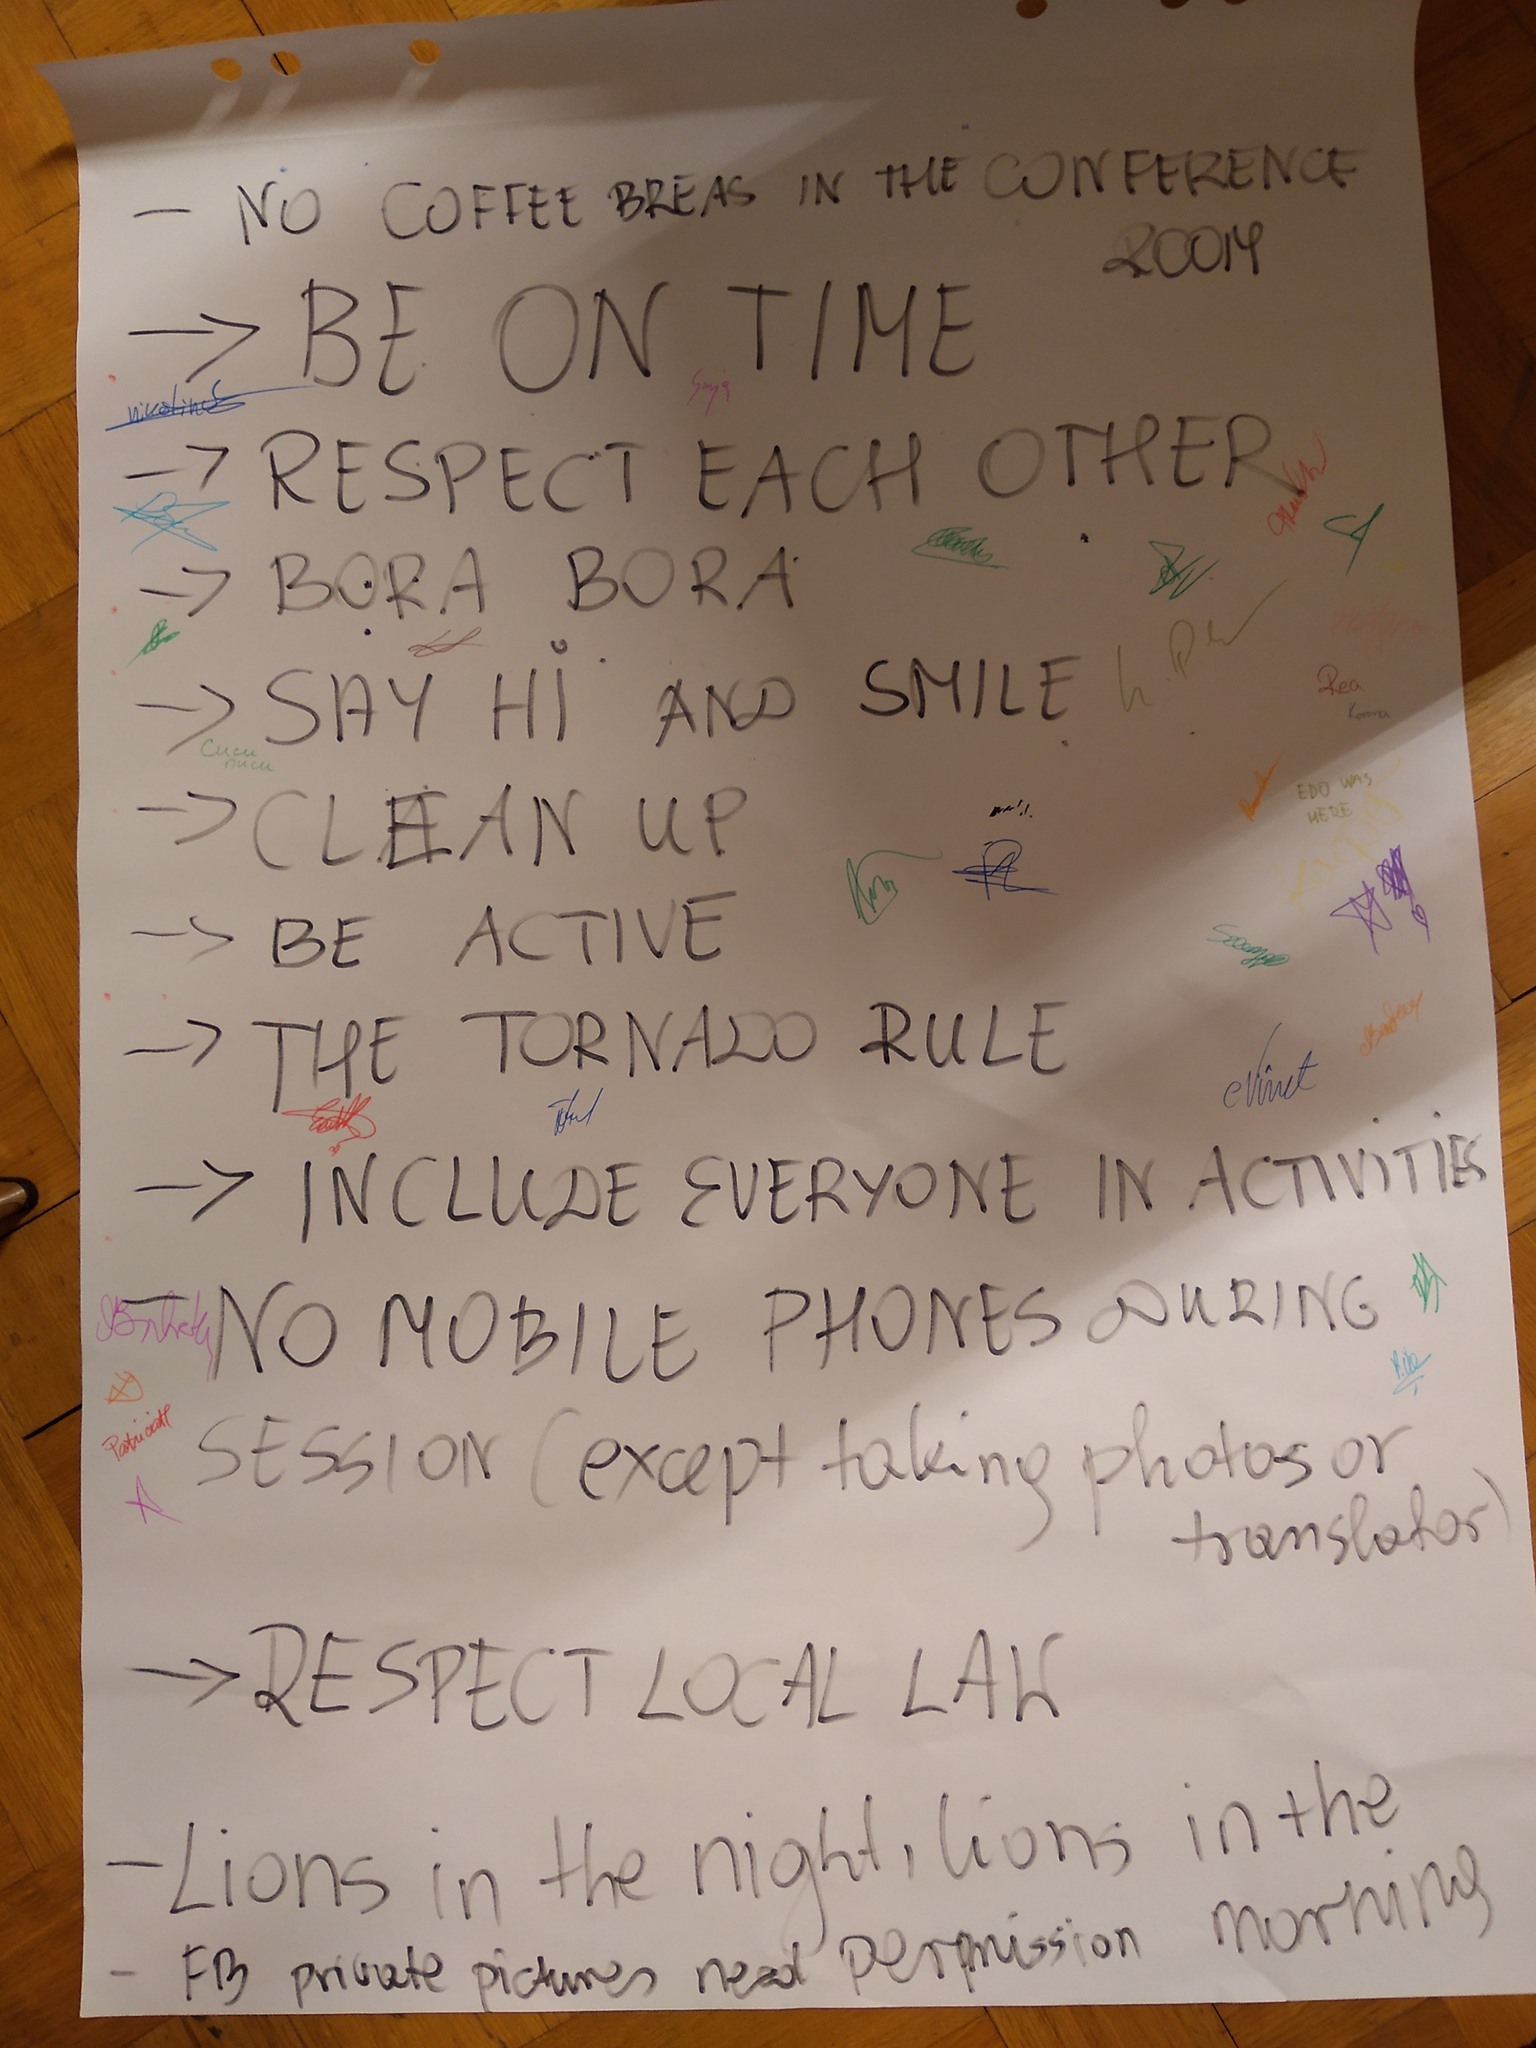 - NO COFFEE BREAS IN THE CONFERENCE
ROOM
→ BE ON TIME
nikolina
→ RESPECT EACH OTHER
→ BORA BORA
→ SAY HI AND SMILE
Rea
Cucu
nucu
→ CLEAN UP
EDO WAS
HERE
→ BE ACTIVE
→ THE TORNADO RULE
→ INCLUDE EVERYONE IN ACTIVITIES
- NO MOBILE PHONES DURING
SESSION (except taking photos or
translator)
→ RESPECT LOCAL LAW
- Lions in the night, lions in the
morning
- FB private pictures need perpmission